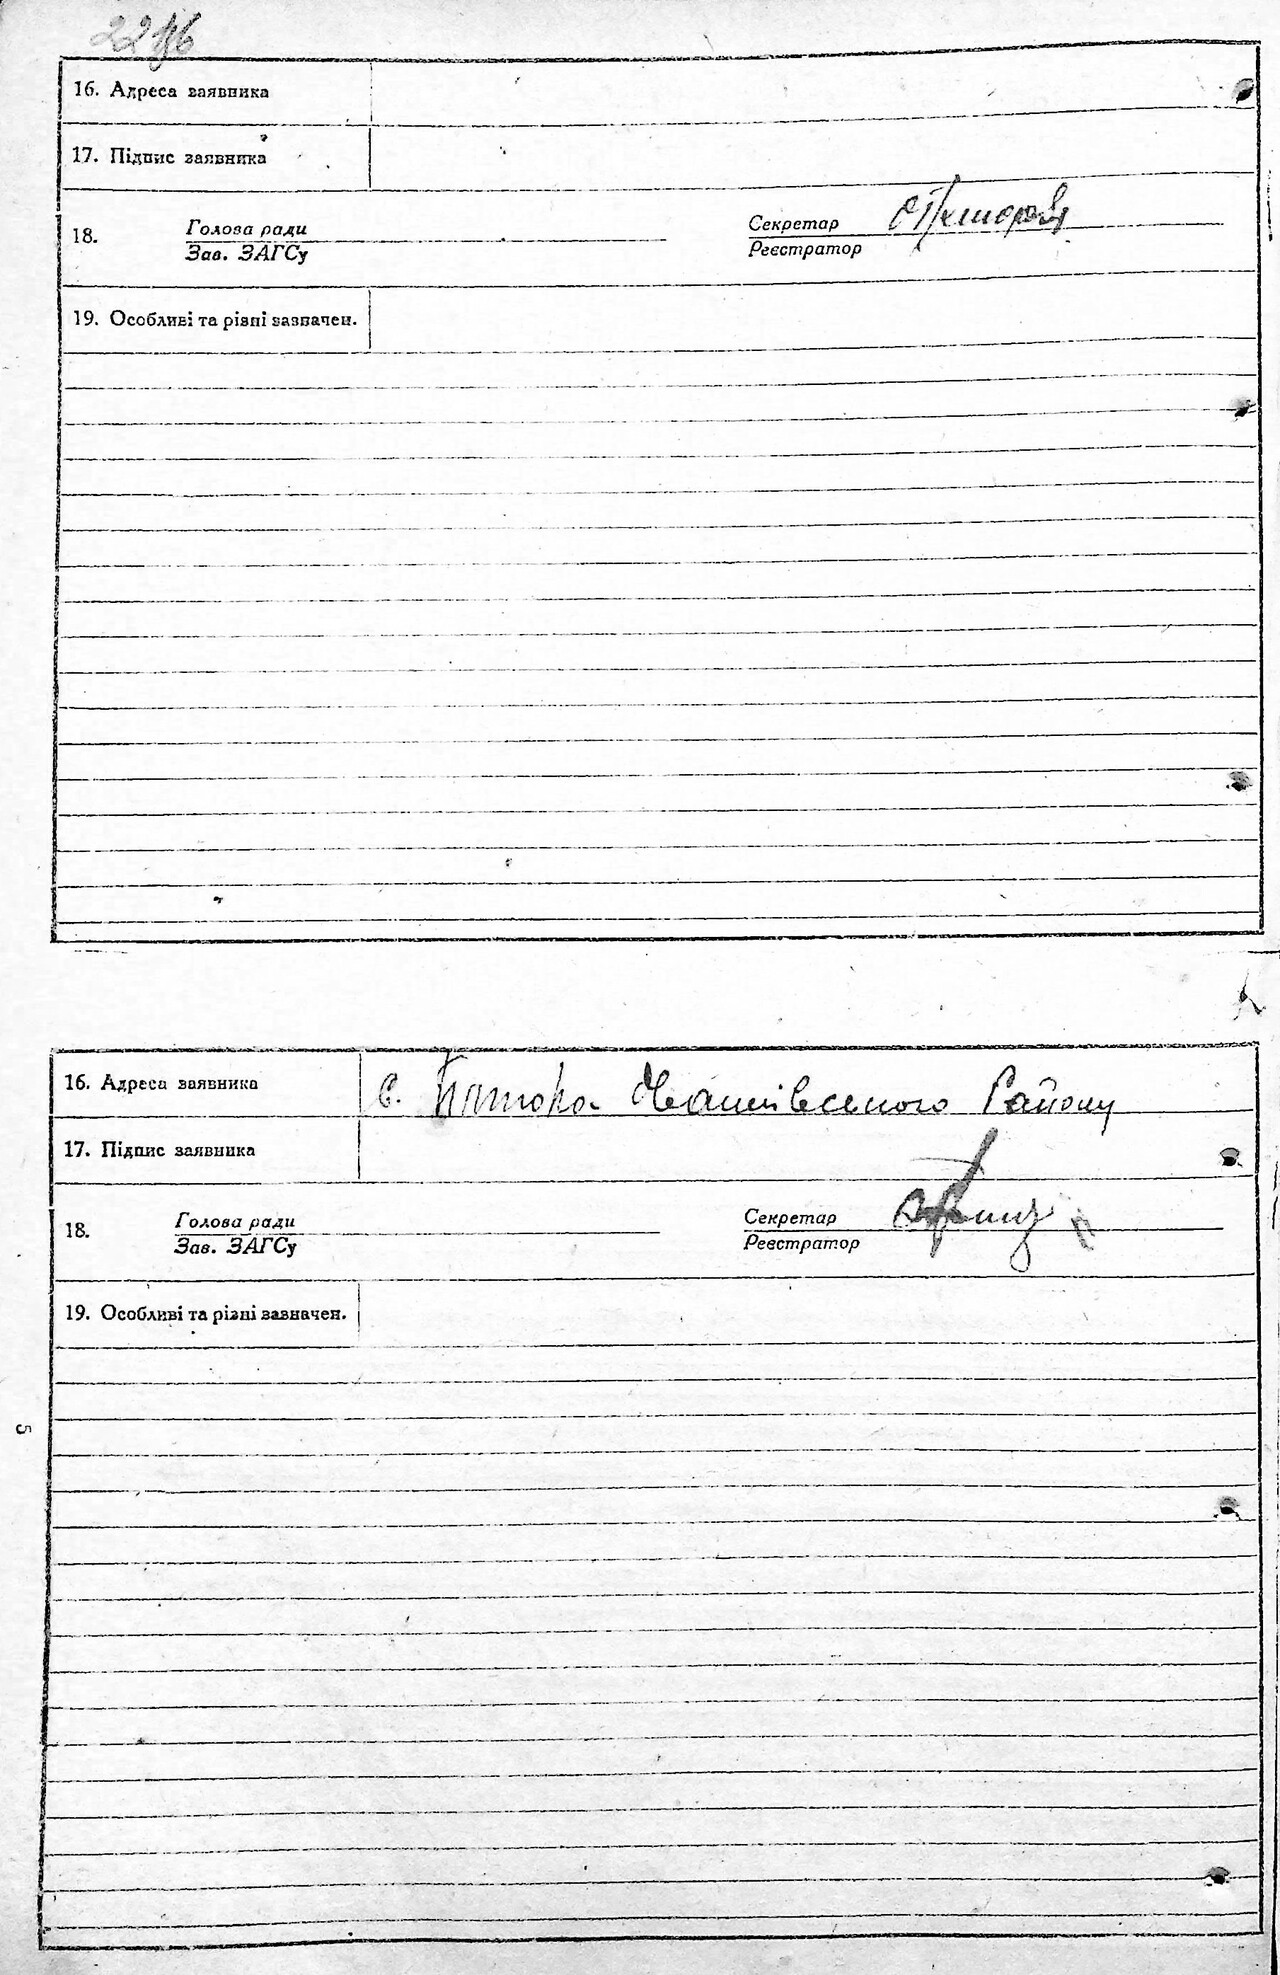 16. Адреса заявника
17. Підпис заявника
18. Голова ради Секретар
Зав. ЗАГСу Реєстратор
19. Особливі та різні зазначен.
16. Адреса заявника с. Району
17. Підпис заявника
18. Голова ради Секретар
Зав. ЗАГСу Реєстратор
19. Особливі та різні зазначен.
5